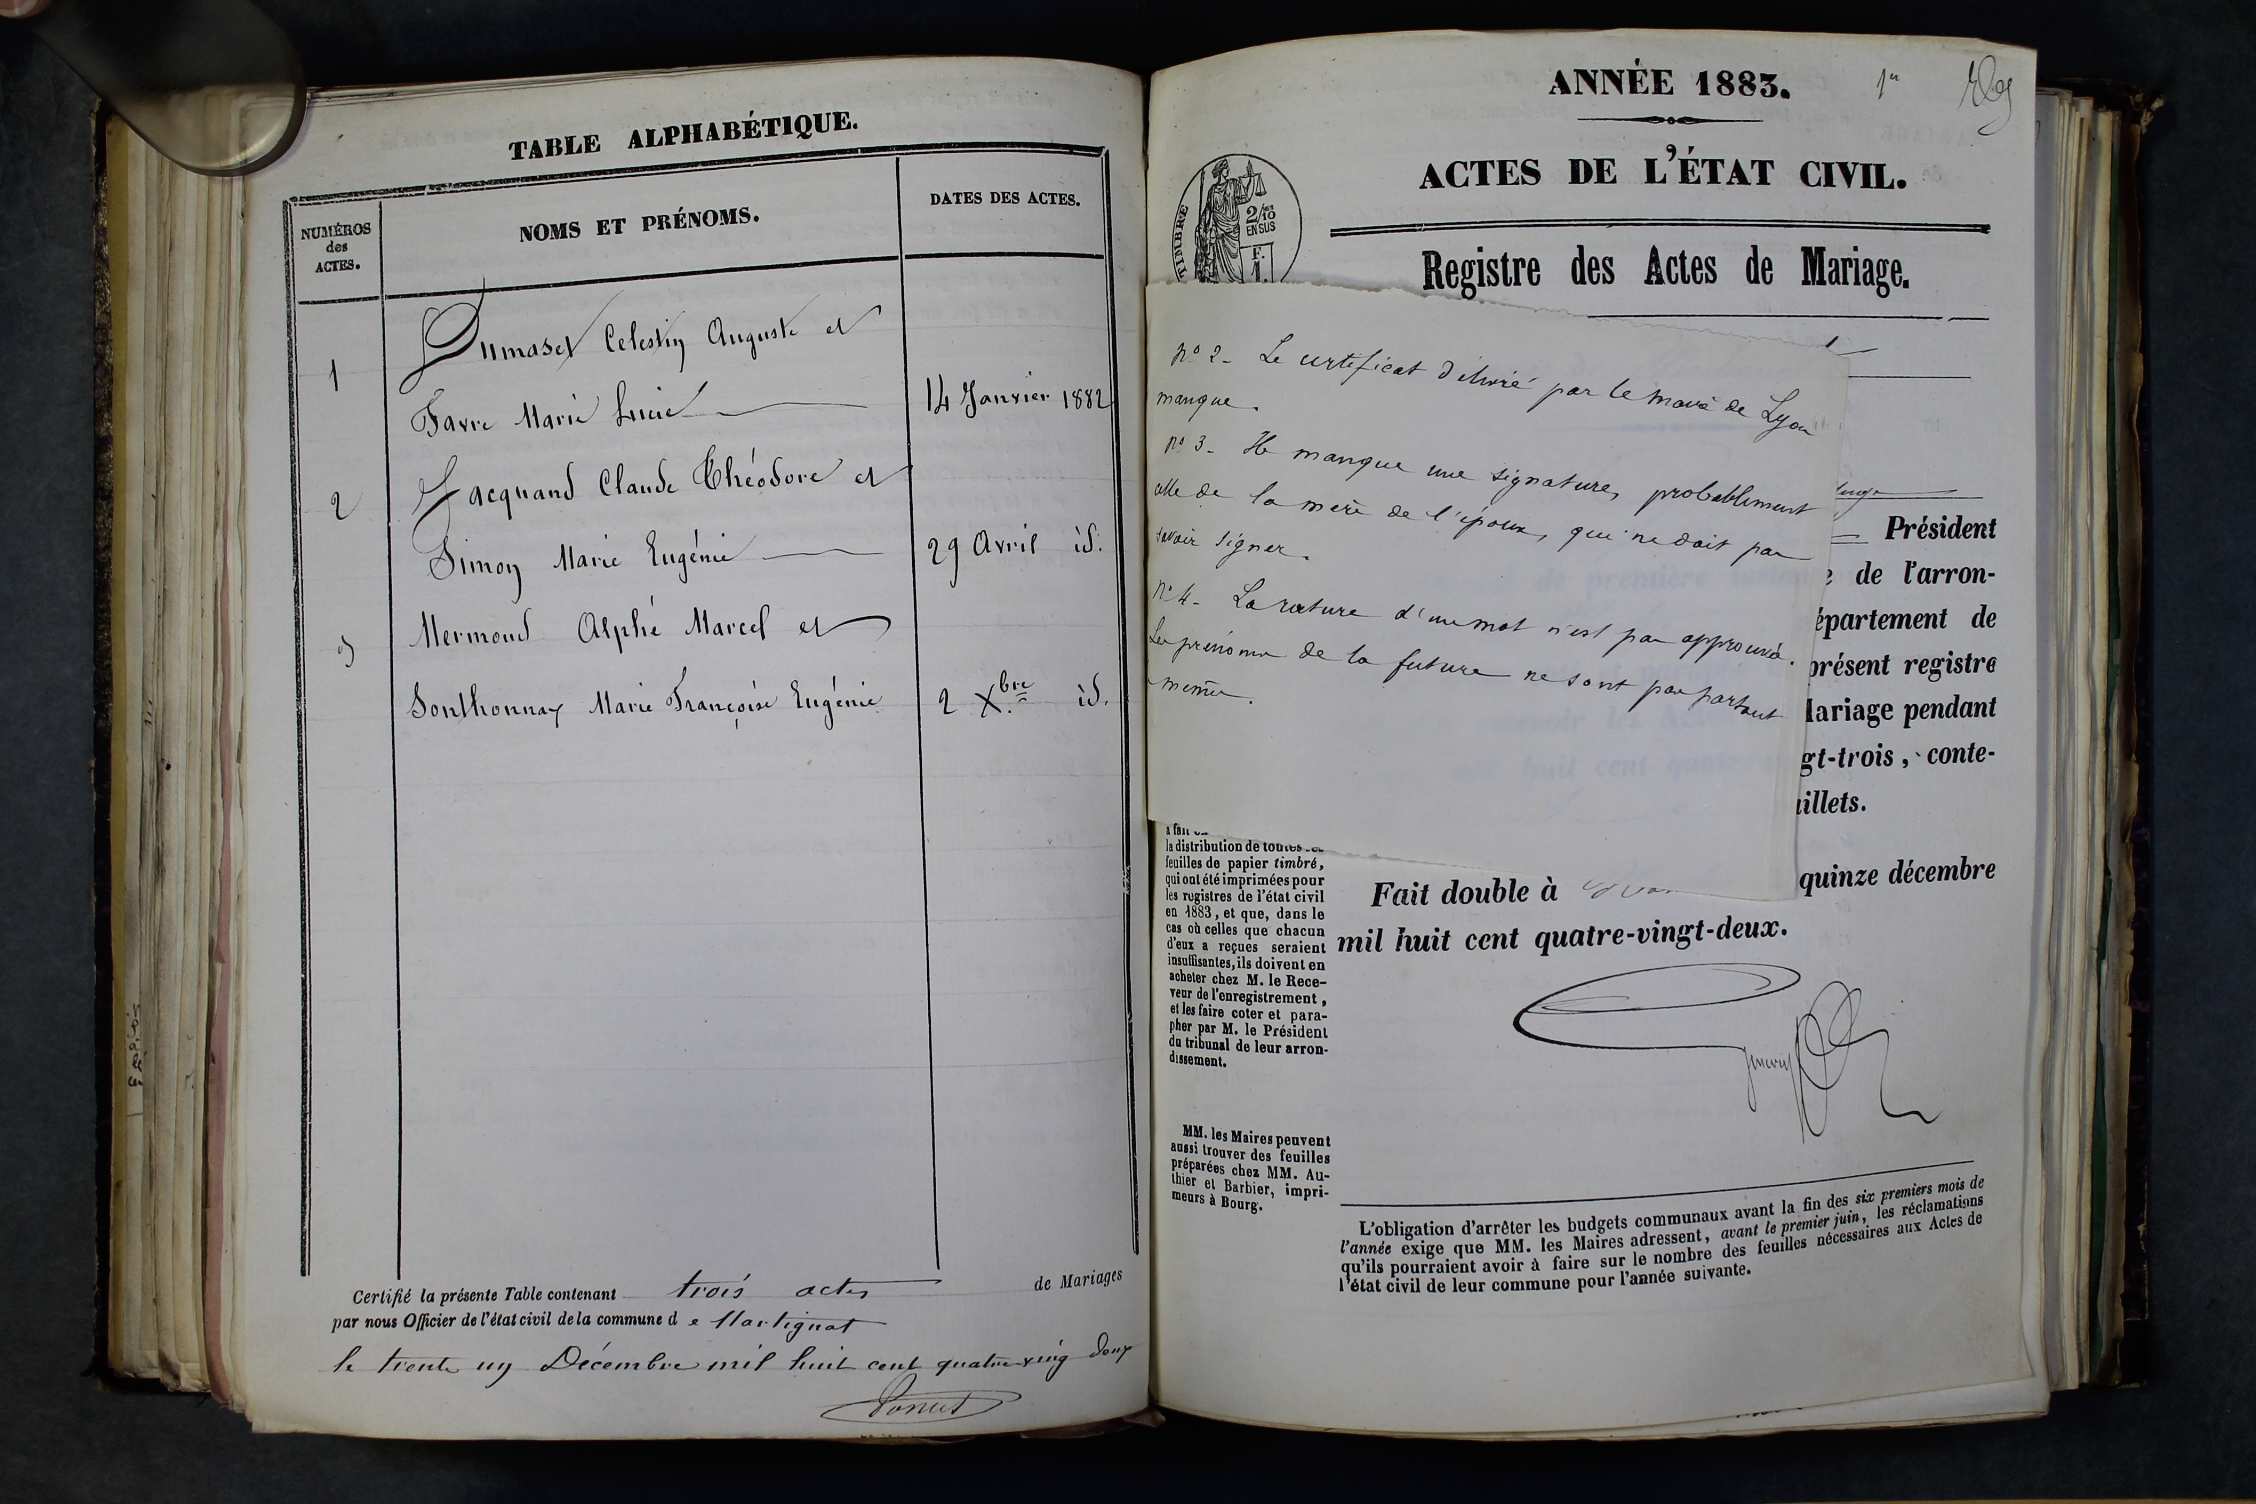 TABLE ALPHABÉTIQUE.
NUMÉROS
des
ACTES.
NOMS ET PRÉNOMS.
DATES DES ACTES.
1
Dumaset Celestin Auguste et
Favre Marie Lucie
14 Janvier 1882
2
Jacquand Claude Théodore et
Simon Marie Eugénie
29 Avril id.
3
Mermoud Alphé Marcel et
Sonthonnax Marie Françoise Eugénie
2 Xbre id.
Certifié la présente Table contenant trois actes de Mariages
par nous Officier de l'état civil de la commune d e Martignat
le trente un Décembre mil huit cent quatre ving deux
ANNÉE 1883.
1er
ACTES DE L'ÉTAT CIVIL.
TIMBRE
2/10
EN SUS
F.
1.
Registre des Actes de Mariage.
no 2 - Le certificat délivré par le maire de Lyon
manque.
no 3 - Il manque une signature, probablement
celle de la mère de l'époux, qui ne doit pas
savoir signer.
no 4 - La rature d'un mot n'est pas approuvé.
Les prénoms de la future ne sont pas partout
mêmes.
Président
e de l'arron-
épartement de
présent registre
Mariage pendant
gt-trois, conte-
uillets.
la distribution de toutes
feuilles de papier timbré,
qui ont été imprimées pour
les registres de l'état civil
en 1883, et que, dans le
cas où celles que chacun
d'eux a reçues seraient
insuffisantes, ils doivent en
acheter chez M. le Rece-
veur de l'enregistrement,
et les faire coter et para-
pher par M. le Président
du tribunal de leur arron-
dissement.
MM. les Maires peuvent
aussi trouver des feuilles
préparées chez MM. Au-
thier et Barbier, impri-
meurs à Bourg.
Fait double à quinze décembre
mil huit cent quatre-vingt-deux.
L'obligation d'arrêter les budgets communaux avant la fin des six premiers mois de
l'année exige que MM. les Maires adressent, avant le premier juin, les réclamations
qu'ils pourraient avoir à faire sur le nombre des feuilles nécessaires aux Actes de
l'état civil de leur commune pour l'année suivante.